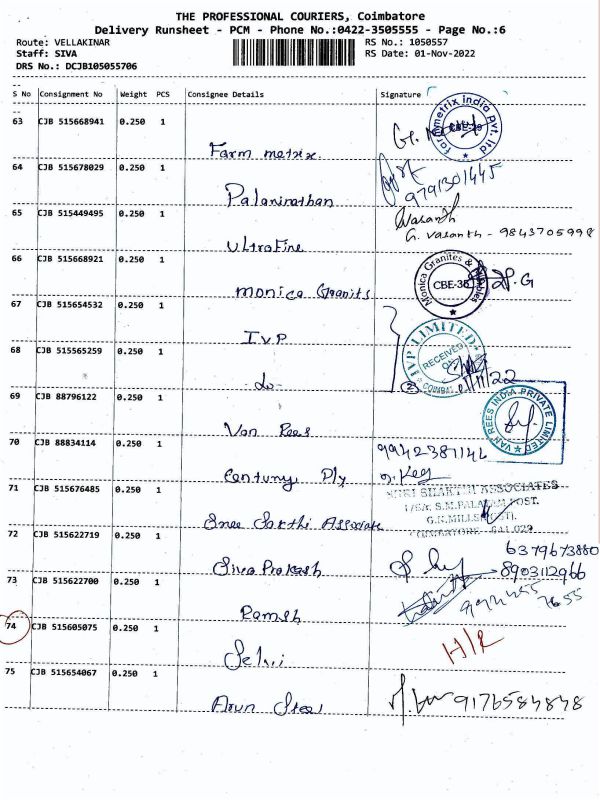 THE PROFESSIONAL COURIERS, Coimbatore
Delivery Runsheet - PCM - Phone No.:0422-3505555 - Page No.:6
Route: VELLAKINAR RS No.: 1050557
Staff: SIVA RS Date: 01-Nov-2022
DRS No.: DCJB105055706
S No Consignment No Weight PCS Consignee Details Signature
63 CJB 515668941 0.250 1 Farm metrix
farmmetrix india pvt. ltd CBE-29
64 CJB 515678029 0.250 1 Palanirathan
9791301445
65 CJB 515449495 0.250 1 Ultrafine
Vasanth
G. Vasanth - 9843705998
66 CJB 515668921 0.250 1 monica Granits
Monica Granites & Marbles CBE-35 P.G
67 CJB 515654532 0.250 1 I.V.P
68 CJB 515565259 0.250 1 do
IVP LIMITED RECEIVED ON COIMBATORE
2 1/11/22
69 CJB 88796122 0.250 1 Van Rees
VAN REES INDIA PRIVATE LIMITED
70 CJB 88834114 0.250 1 Century Ply
9942381142
71 CJB 515676485 0.250 1 Sree Sakthi Associate
SHRI SHAKTHI ASSOCIATES
S.M.PALAYAM POST.
G.N.MILLS
COIMBATORE - 641 029
72 CJB 515622719 0.250 1 Siva Prakash
6379673880
8903112966
73 CJB 515622700 0.250 1 Ramesh
7655
74 CJB 515605075 0.250 1 Selvi
H/R
75 CJB 515654067 0.250 1 Arun Steel
9176584848